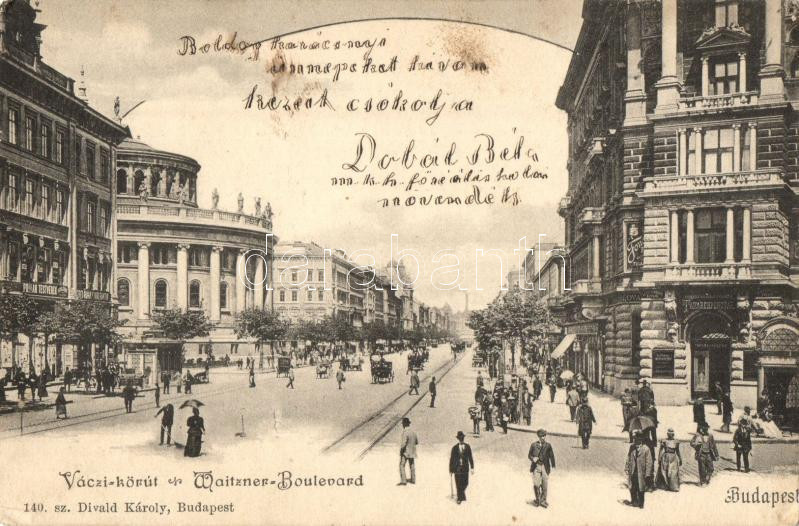 Boldog karácsonyi
ünnepeket kíván
kezeit csókolja
Dobál Béla
m. k. h. főreáliskolai
növendék
darabanth
Váczi-körút Waitzner-Boulevard
140. sz. Divald Károly, Budapest
Budapest